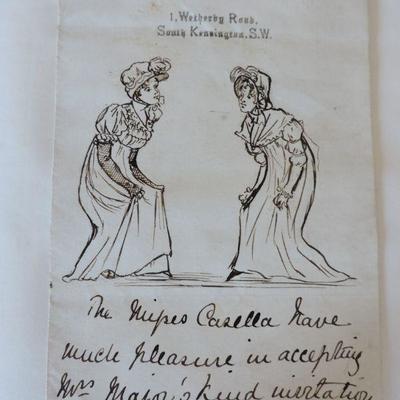 1, Wetherby Road,
South Kensington, S.W.
The Misses Casella have
much pleasure in accepting
Mrs Major's kind invitation